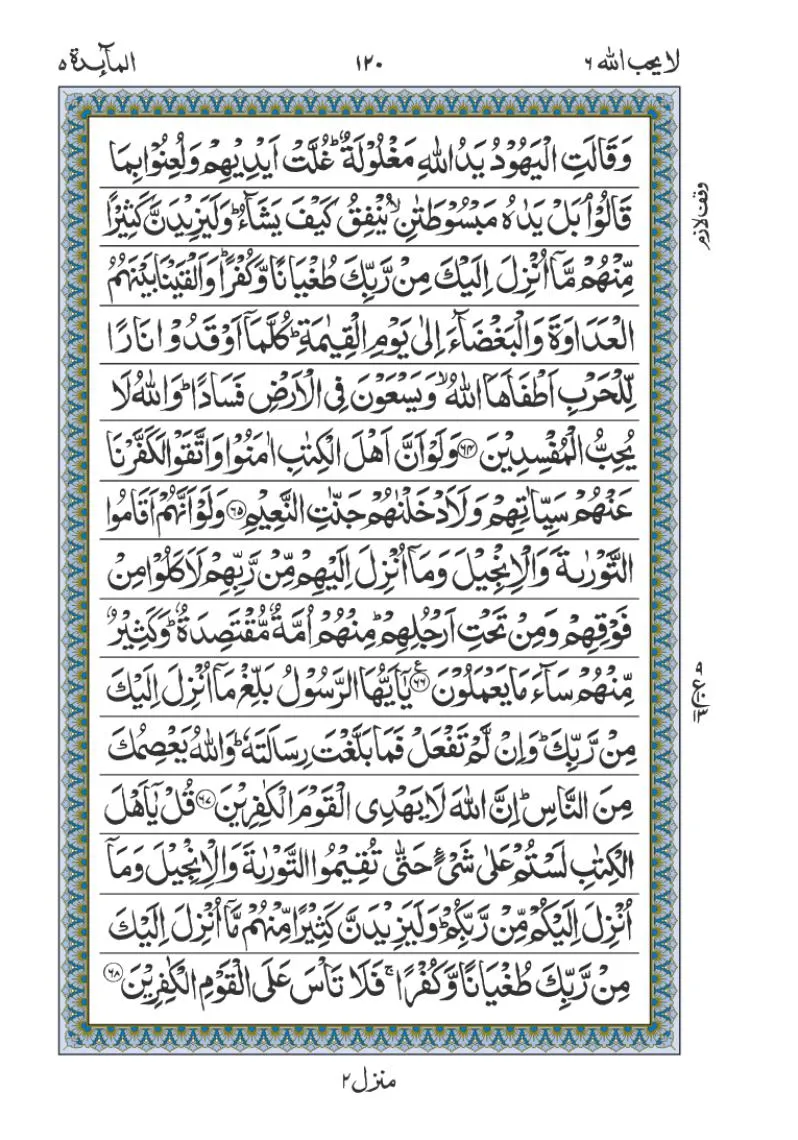 لا يحب الله ٦
١٢٠
المآئدة ٥
وَقَالَتِ الْيَهُوْدُ يَدُ اللّٰهِ مَغْلُوْلَةٌ ؕ غُلَّتْ اَيْدِيْهِمْ وَلُعِنُوْا بِمَا
قَالُوْا ۘ بَلْ يَدٰهُ مَبْسُوْطَتٰنِ ۙ يُنْفِقُ كَيْفَ يَشَآءُ ؕ وَلَيَزِيْدَنَّ كَثِيْرًا
وقف لازم
مِّنْهُمْ مَّاۤ اُنْزِلَ اِلَيْكَ مِنْ رَّبِّكَ طُغْيَانًا وَّكُفْرًا ؕ وَاَلْقَيْنَا بَيْنَهُمُ
الْعَدَاوَةَ وَالْبَغْضَآءَ اِلٰى يَوْمِ الْقِيٰمَةِ ؕ كُلَّمَاۤ اَوْقَدُوْا نَارًا
لِّلْحَرْبِ اَطْفَاَهَا اللّٰهُ ۙ وَيَسْعَوْنَ فِى الْاَرْضِ فَسَادًا ؕ وَاللّٰهُ لَا
يُحِبُّ الْمُفْسِدِيْنَ ﴿۶۴﴾ وَلَوْ اَنَّ اَهْلَ الْكِتٰبِ اٰمَنُوْا وَاتَّقَوْا لَكَفَّرْنَا
عَنْهُمْ سَيِّاٰتِهِمْ وَلَاَدْخَلْنٰهُمْ جَنّٰتِ النَّعِيْمِ ﴿۶۵﴾ وَلَوْ اَنَّهُمْ اَقَامُوا
التَّوْرٰىةَ وَالْاِنْجِيْلَ وَمَاۤ اُنْزِلَ اِلَيْهِمْ مِّنْ رَّبِّهِمْ لَاَكَلُوْا مِنْ
فَوْقِهِمْ وَمِنْ تَحْتِ اَرْجُلِهِمْ ؕ مِنْهُمْ اُمَّةٌ مُّقْتَصِدَةٌ ؕ وَكَثِيْرٌ
مِّنْهُمْ سَآءَ مَا يَعْمَلُوْنَ ﴿۶۶﴾ يٰۤاَيُّهَا الرَّسُوْلُ بَلِّغْ مَاۤ اُنْزِلَ اِلَيْكَ
مِنْ رَّبِّكَ ؕ وَاِنْ لَّمْ تَفْعَلْ فَمَا بَلَّغْتَ رِسَالَتَهٗ ؕ وَاللّٰهُ يَعْصِمُكَ
مِنَ النَّاسِ ؕ اِنَّ اللّٰهَ لَا يَهْدِى الْقَوْمَ الْكٰفِرِيْنَ ﴿۶۷﴾ قُلْ يٰۤاَهْلَ
الْكِتٰبِ لَسْتُمْ عَلٰى شَىْءٍ حَتّٰى تُقِيْمُوا التَّوْرٰىةَ وَالْاِنْجِيْلَ وَمَاۤ
اُنْزِلَ اِلَيْكُمْ مِّنْ رَّبِّكُمْ ؕ وَلَيَزِيْدَنَّ كَثِيْرًا مِّنْهُمْ مَّاۤ اُنْزِلَ اِلَيْكَ
مِنْ رَّبِّكَ طُغْيَانًا وَّكُفْرًا ۚ فَلَا تَاْسَ عَلَى الْقَوْمِ الْكٰفِرِيْنَ ﴿۶۸﴾
منزل ٢